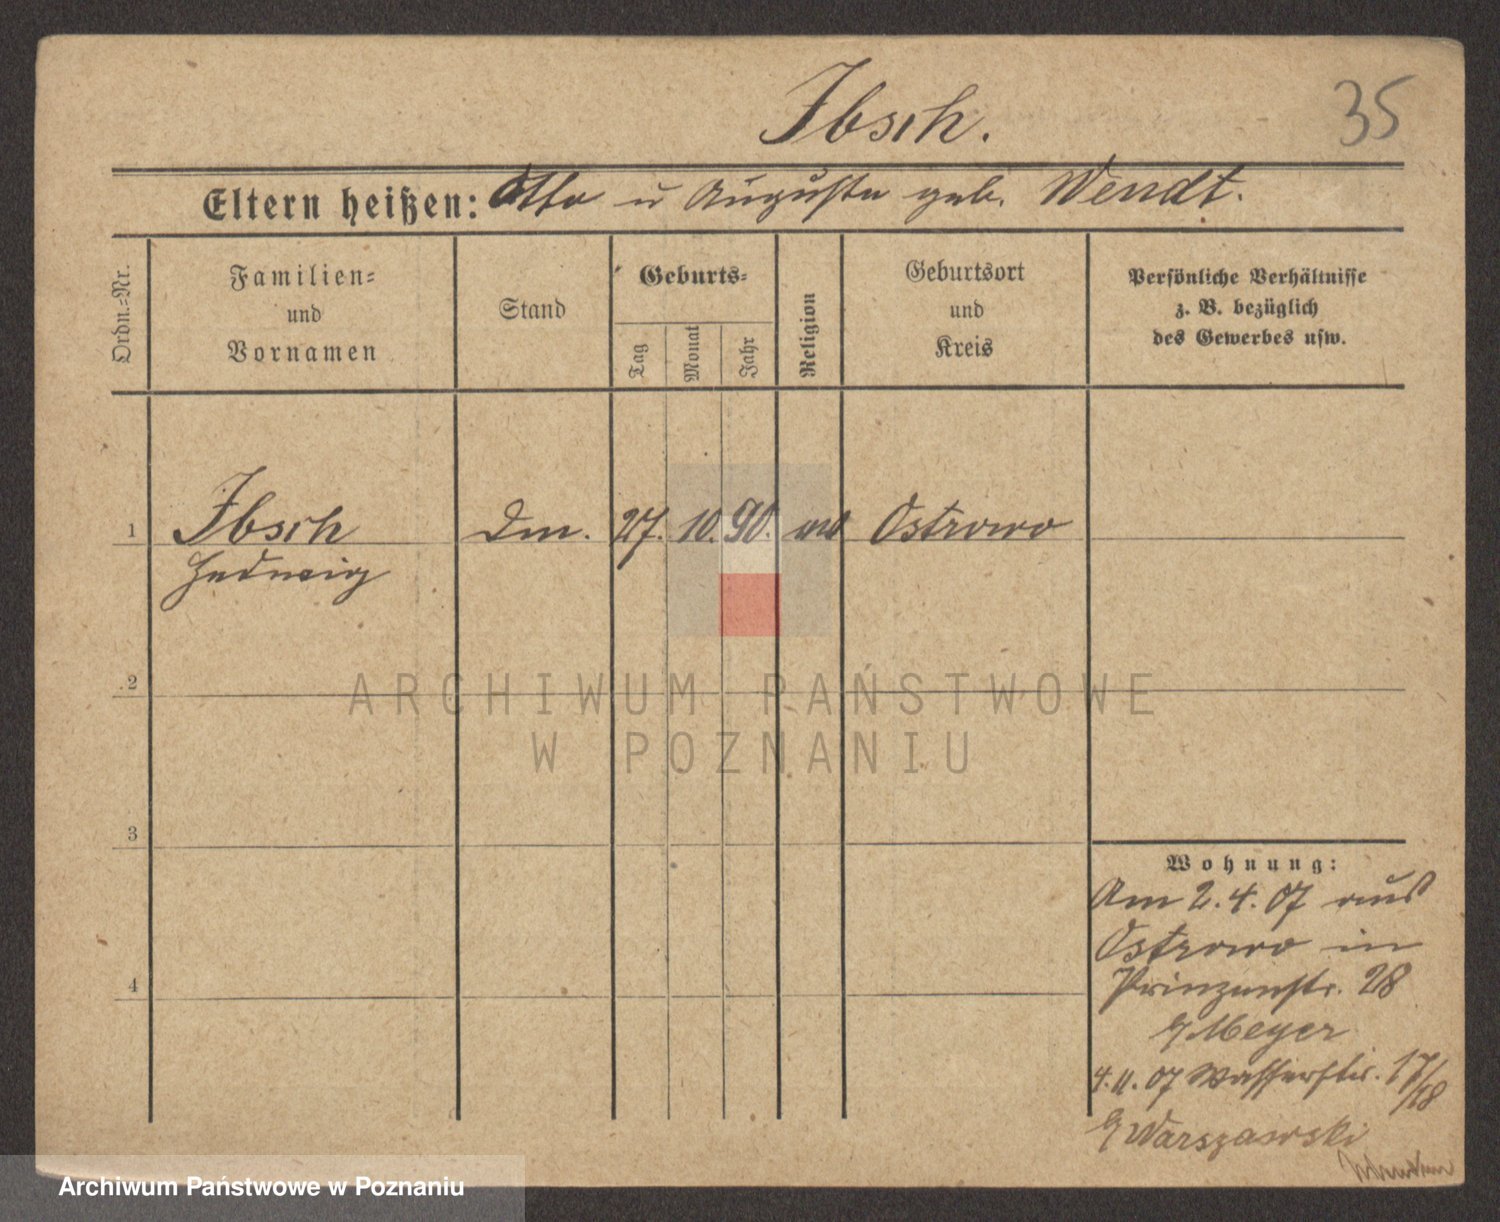 Ibsch.
35
Eltern heißen: Otto u Auguste geb. Wendt.
Ordn.-Nr.
Familien-
und
Vornamen
Stand
Geburts-
Tag
Monat
Jahr
Religion
Geburtsort
und
Kreis
Persönliche Verhältnisse
z. B. bezüglich
des Gewerbes usw.
1 Ibsch Dm. 27. 10. 90. Ostrowo
Hedwig
2
ARCHIWUM PAŃSTWOWE
W POZNANIU
3
Wohnung:
Am 2.4.07 aus
Ostrowo in
4
Prinzenstr. 28
Meyer
4.11.07 Wasserstr. 17/18
Warszawski
Archiwum Państwowe w Poznaniu